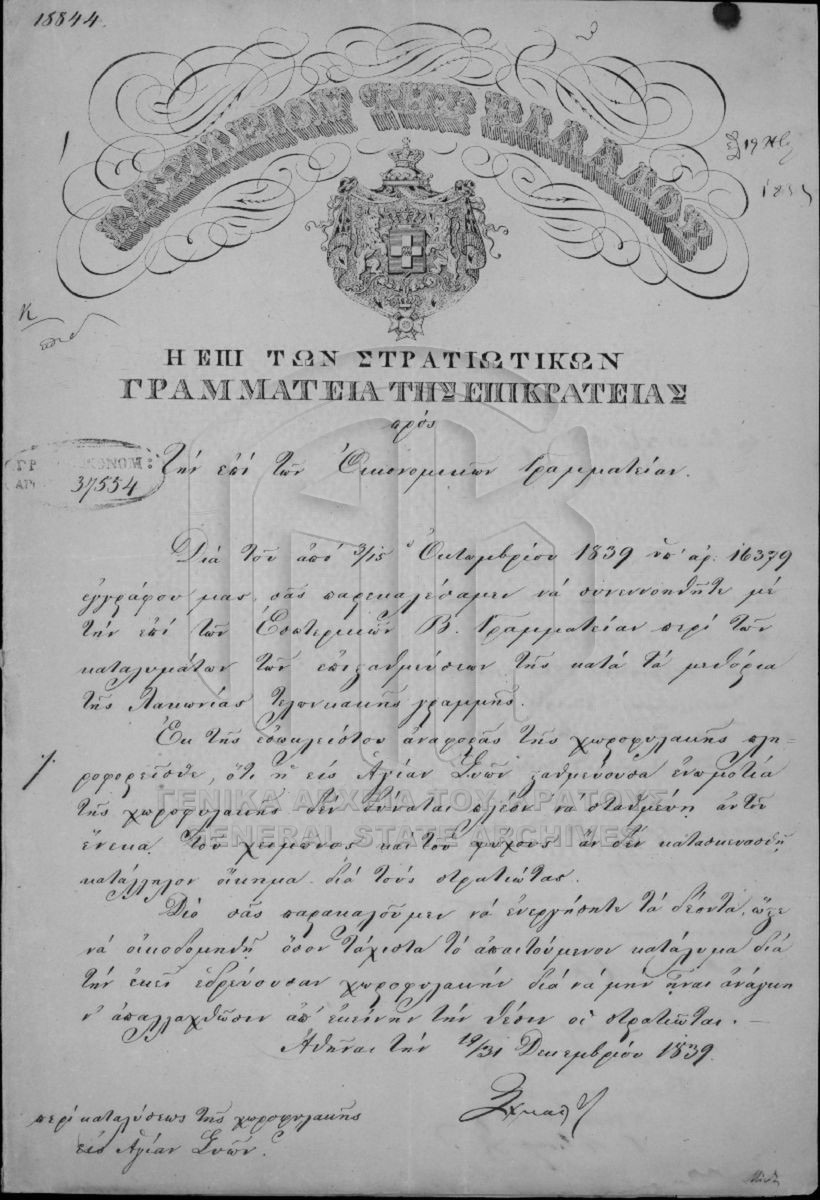 18844.
ΒΑΣΙΛΕΙΟΝ ΤΗΣ ΕΛΛΑΔΟΣ
Η ΕΠΙ ΤΩΝ ΣΤΡΑΤΙΩΤΙΚΩΝ
ΓΡΑΜΜΑΤΕΙΑ ΤΗΣ ΕΠΙΚΡΑΤΕΙΑΣ
πρός
Τὴν ἐπὶ τῶν Οἰκονομικῶν Γραμματείαν.
37554
Διὰ τοῦ ἀπὸ 3/15 Ὀκτωμβρίου 1839 ὑπ' ἀρ: 16379
ἐγγράφου μας, σᾶς παρεκαλέσαμεν νὰ συνεννοηθῆτε μὲ
τὴν ἐπὶ τῶν Ἐσωτερικῶν Β. Γραμματείαν περὶ τῶν
καταλυμάτων τῶν ἐπισταθμεύσεων τῆς κατὰ τὰ μεθόρια
τῆς Λακωνίας τελωνιακῆς γραμμῆς.
Ἐκ τῆς ἐσωκλείστου ἀναφορᾶς τῆς χωροφυλακῆς πλη-
ροφορεῖσθε, ὅτι ἡ εἰς Ἁγίαν Σιὼν σταθμεύουσα ἐνωμοτία
τῆς χωροφυλακῆς δὲν δύναται πλέον νὰ σταθμεύῃ αὐτοῦ
ἕνεκα τοῦ χειμῶνος καὶ τοῦ ψύχους ἂν δὲν κατασκευασθῇ
κατάλληλον οἴκημα διὰ τοὺς στρατιώτας.
Διὸ σᾶς παρακαλοῦμεν νὰ ἐνεργήσητε τὰ δέοντα, ὥστε
νὰ οἰκοδομηθῇ ὅσον τάχιστα τὸ ἀπαιτούμενον κατάλυμα διὰ
τὴν ἐκεῖ ἑδρεύουσαν χωροφυλακὴν διὰ νὰ μὴν ἦναι ἀνάγκη
ν' ἀπαλλαχθῶσιν ἀπ' ἐκείνην τὴν θέσιν οἱ στρατιῶται. —
Ἀθῆναι τὴν 19/31 Δεκεμβρίου 1839.
περὶ καταλύσεως τῆς χωροφυλακῆς
εἰς Ἁγίαν Σιών.
ΓΕΝΙΚΑ ΑΡΧΕΙΑ ΤΟΥ ΚΡΑΤΟΥΣ
GENERAL STATE ARCHIVES